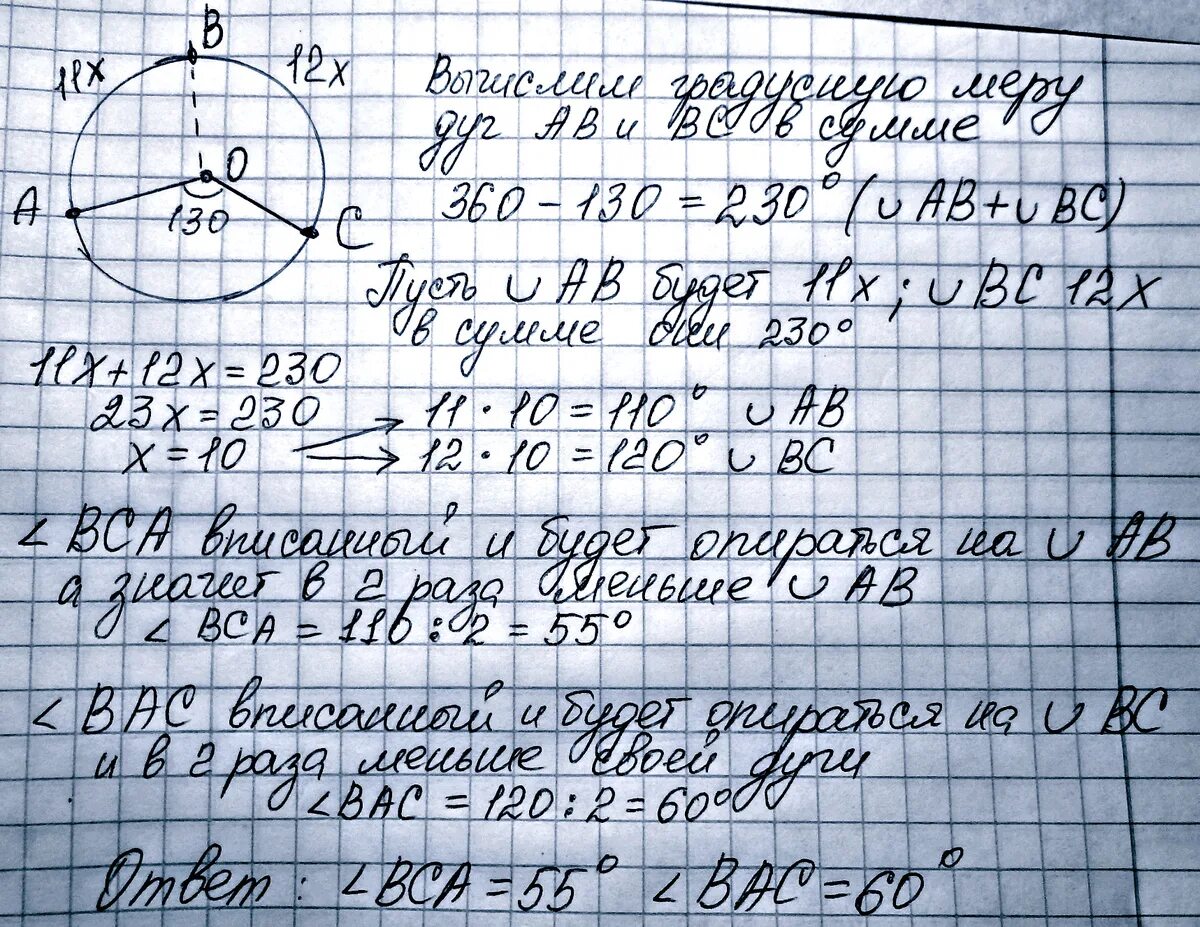 B
11x
12x
O
A
130
C
Вычислим градусную меру
дуг AB и BC в сумме
360 - 130 = 230° (∪ AB + ∪ BC)
Пусть ∪ AB будет 11x; ∪ BC 12x
в сумме они 230°
11x + 12x = 230
23x = 230
x = 10
11 · 10 = 110° ∪ AB
12 · 10 = 120° ∪ BC
∠ BCA вписанный и будет опираться на ∪ AB
а значит в 2 раза меньше ∪ AB
∠ BCA = 110 : 2 = 55°
∠ BAC вписанный и будет опираться на ∪ BC
и в 2 раза меньше своей дуги
∠ BAC = 120 : 2 = 60°
Ответ: ∠ BCA = 55° ∠ BAC = 60°